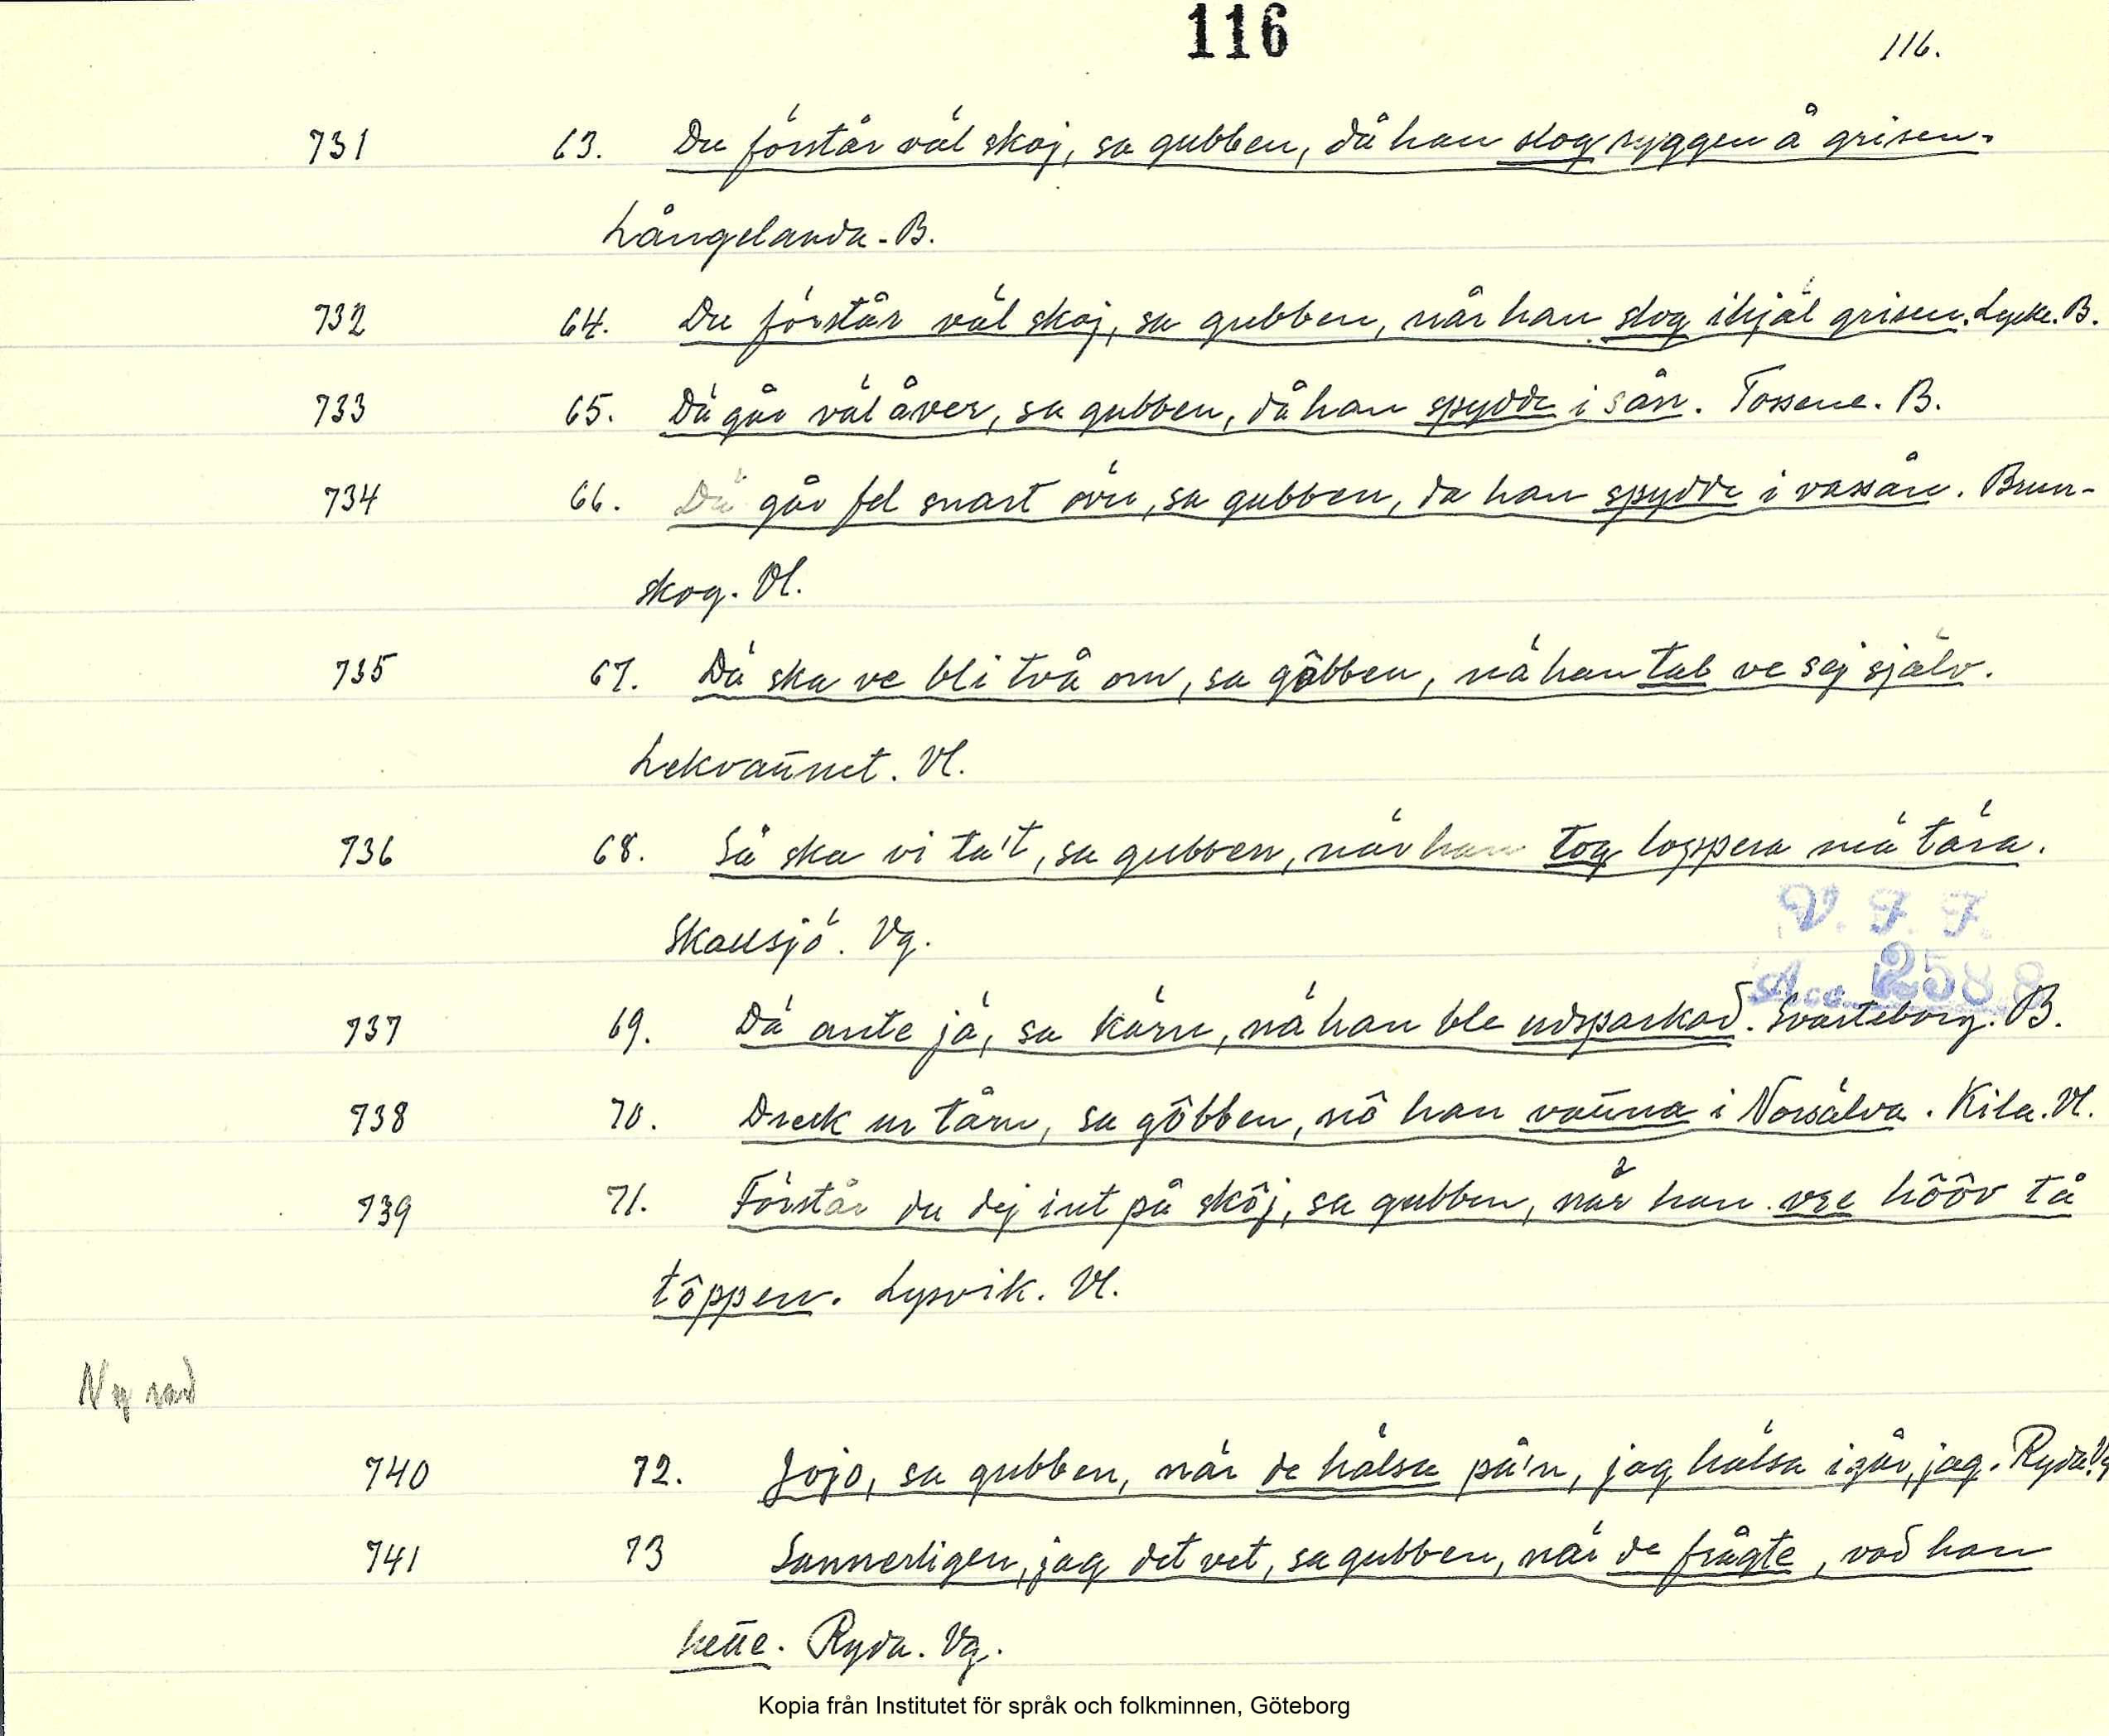 116
116.
731 63. Du förstår väl skoj, sa gubben, då han slog ryggen å grisen.
Långelanda. B.
732 64. Du förstår väl skoj, sa gubben, når han slog ihjäl grisen. Lycke. B.
733 65. Dä går väl åver, sa gubben, då han spydde i sån. Tossene. B.
734 66. Dä går fel snart över, sa gubben, da han spydde i vassån. Brun-
skog. Vl.
735 67. Dä ska ve bli två om, sa gôbben, nä han tal ve sej själv.
Lekvattnet. Vl.
736 68. Så ska vi ta't, sa gubben, när han tog loppera mä tåra.
Skallsjö. Vg.
V. F. F.
Acc. 2588
737 69. Dä ante jä, sa kärn, nä han ble udsparkad. Svarteborg. B.
738 70. Dreck ur tårn, sa gôbben, nô han vanna i Norsälva. Kila. Vl.
739 71. Förstår du dej int på skôj, sa gubben, når han vre hôôv tå
tôppen. Lysvik. Vl.
Ny rad
740 72. Jojo, sa gubben, när de hälsa på'n, jag hälsa igår, jag. Ryda. Vg
741 73 Sannerligen, jag det vet, sa gubben, när de frågte, vad han
hette. Ryda. Vg.
Kopia från Institutet för språk och folkminnen, Göteborg